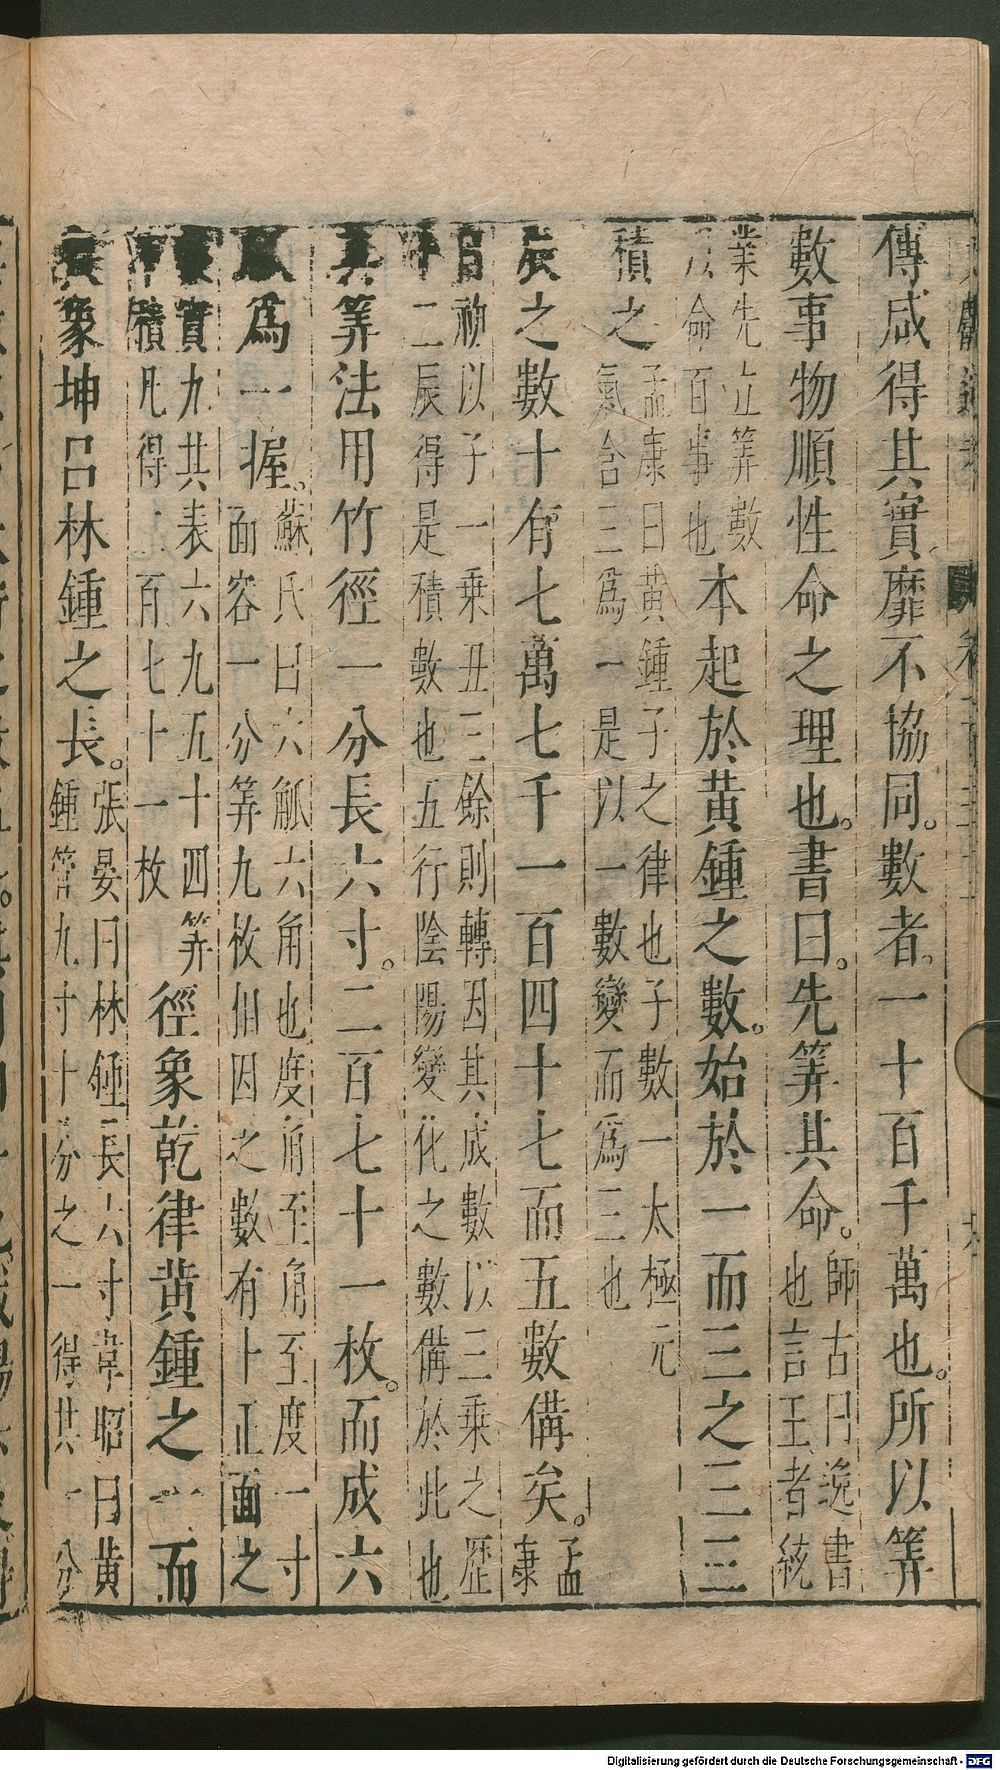 傳咸得其實靡不協同。數者。一十百千萬也。所以筭
數事物順性命之理也。書曰。先筭其命。師古曰逸書
也言王者統
業先立筭數
以命百事也
本起於黃鍾之數。始於一而三之三三
積之
孟康曰黃鍾子之律也子數一太極元
氣含三爲一是以一數變而爲三也
辰之數十有七萬七千一百四十七而五數備矣。孟
康
曰初以子一乘丑三餘則轉因其成數以三乘之歷
十二辰得是積數也五行陰陽變化之數備於此也
其筭法用竹徑一分長六寸。二百七十一枚。而成六
觚爲一握。
蘇氏曰六觚六角也度角至角至度一寸
面容一分筭九枚相因之數有十正面之
數實九其表六九五十四筭
中積凡得二百七十一枚
徑象乾律黃鍾之一而
長象坤呂林鍾之長。
張晏曰林鍾長六寸韋昭曰黃
鍾管九寸十分之一得其一分
Digitalisierung gefördert durch die Deutsche Forschungsgemeinschaft - DFG